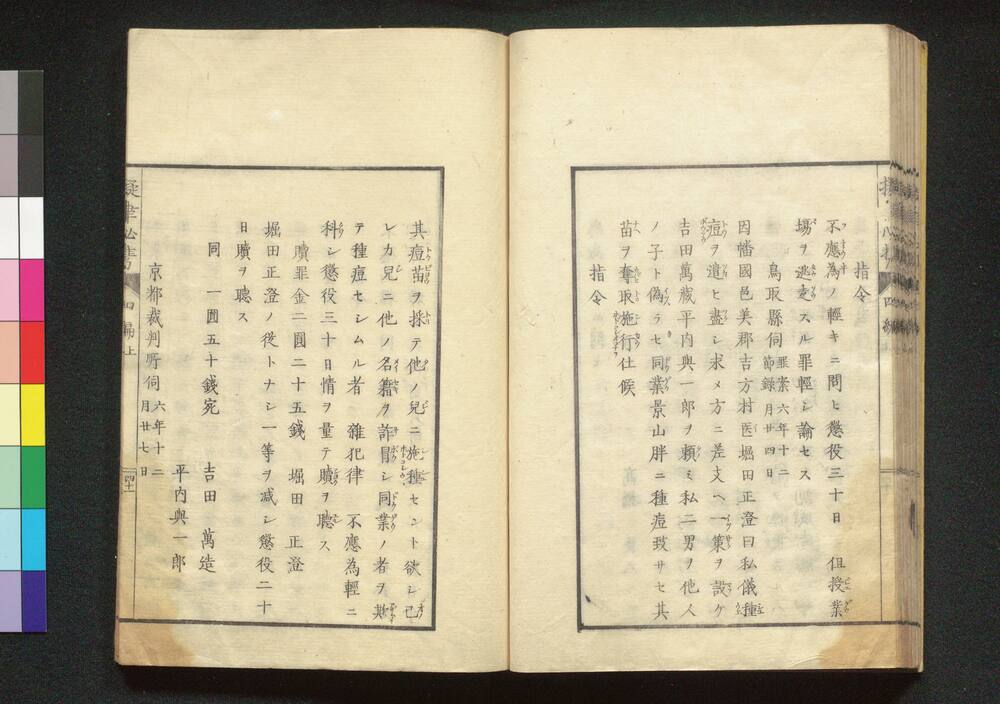 指令
不應為ノ輕キニ問ヒ懲役三十日 但授業
場ヲ逃走スル罪輕シ論セス
鳥取縣伺 罪案六年十二
節録月廿四日
因幡國邑美郡吉方村医堀田正澄曰私儀種
痘ヲ追ヒ盡シ求メ方ニ差支ヘ一策ヲ設ケ
吉田萬藏平内與一郎ヲ頼ミ私二男ヲ他人
ノ子ト偽ラセ同業景山胖ニ種痘致サセ其
苗ヲ奪取施行仕候
指令
其痘苗ヲ採テ他ノ兒ニ施種セント欲シ己
レカ兒ニ他ノ名籍ヲ詐冒シ同業ノ者ヲ欺
テ種痘セシムル者 雜犯律 不應為輕ニ
科シ懲役三十日情ヲ量テ贖ヲ聽ス
贖罪金二圓二十五錢 堀田 正澄
堀田正澄ノ從トナシ一等ヲ减シ懲役二十
日贖ヲ聽ス
同 一圓五十錢宛 吉田 萬造
平内與一郎
京都裁判所伺 六年十二
月廿七日
擬律必携 四編上
四十